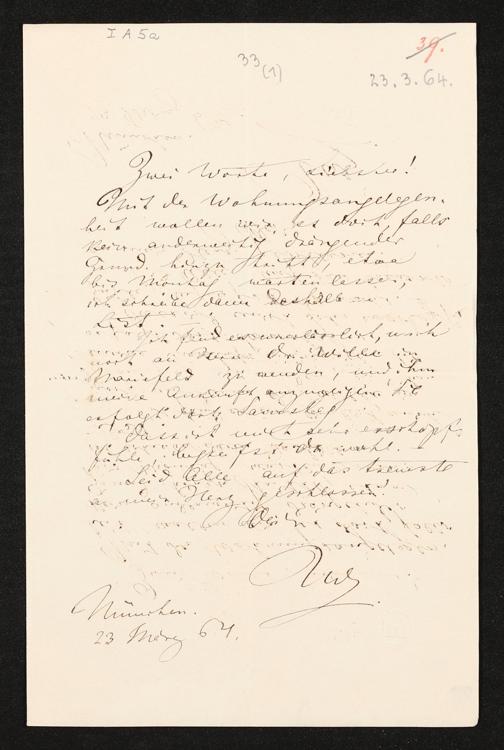 I A 5a
39.
33
(1)
23.3.64.
Zwei Worte, Liebster!
Mit der Wohnungsangelegen-
heit wollen wir es doch, falls
kein anderweitig drängender
Grund hinzu tritt, etwa
bis Montag warten lassen,
ich schreibe dann deshalb an
List.
Ich fand es unerlässlich, mich
noch an Frau Dr. Wille in
Mariafeld zu wenden, und ihr
meine Ankunft anzuzeigen. Sie
erfolgt dort
Dass ich mich sehr erschöpft
fühle, begreifst du wohl.
Seid Alle auf das treueste
an mein Herz geschlossen!
Dein
München.
23 März 64.